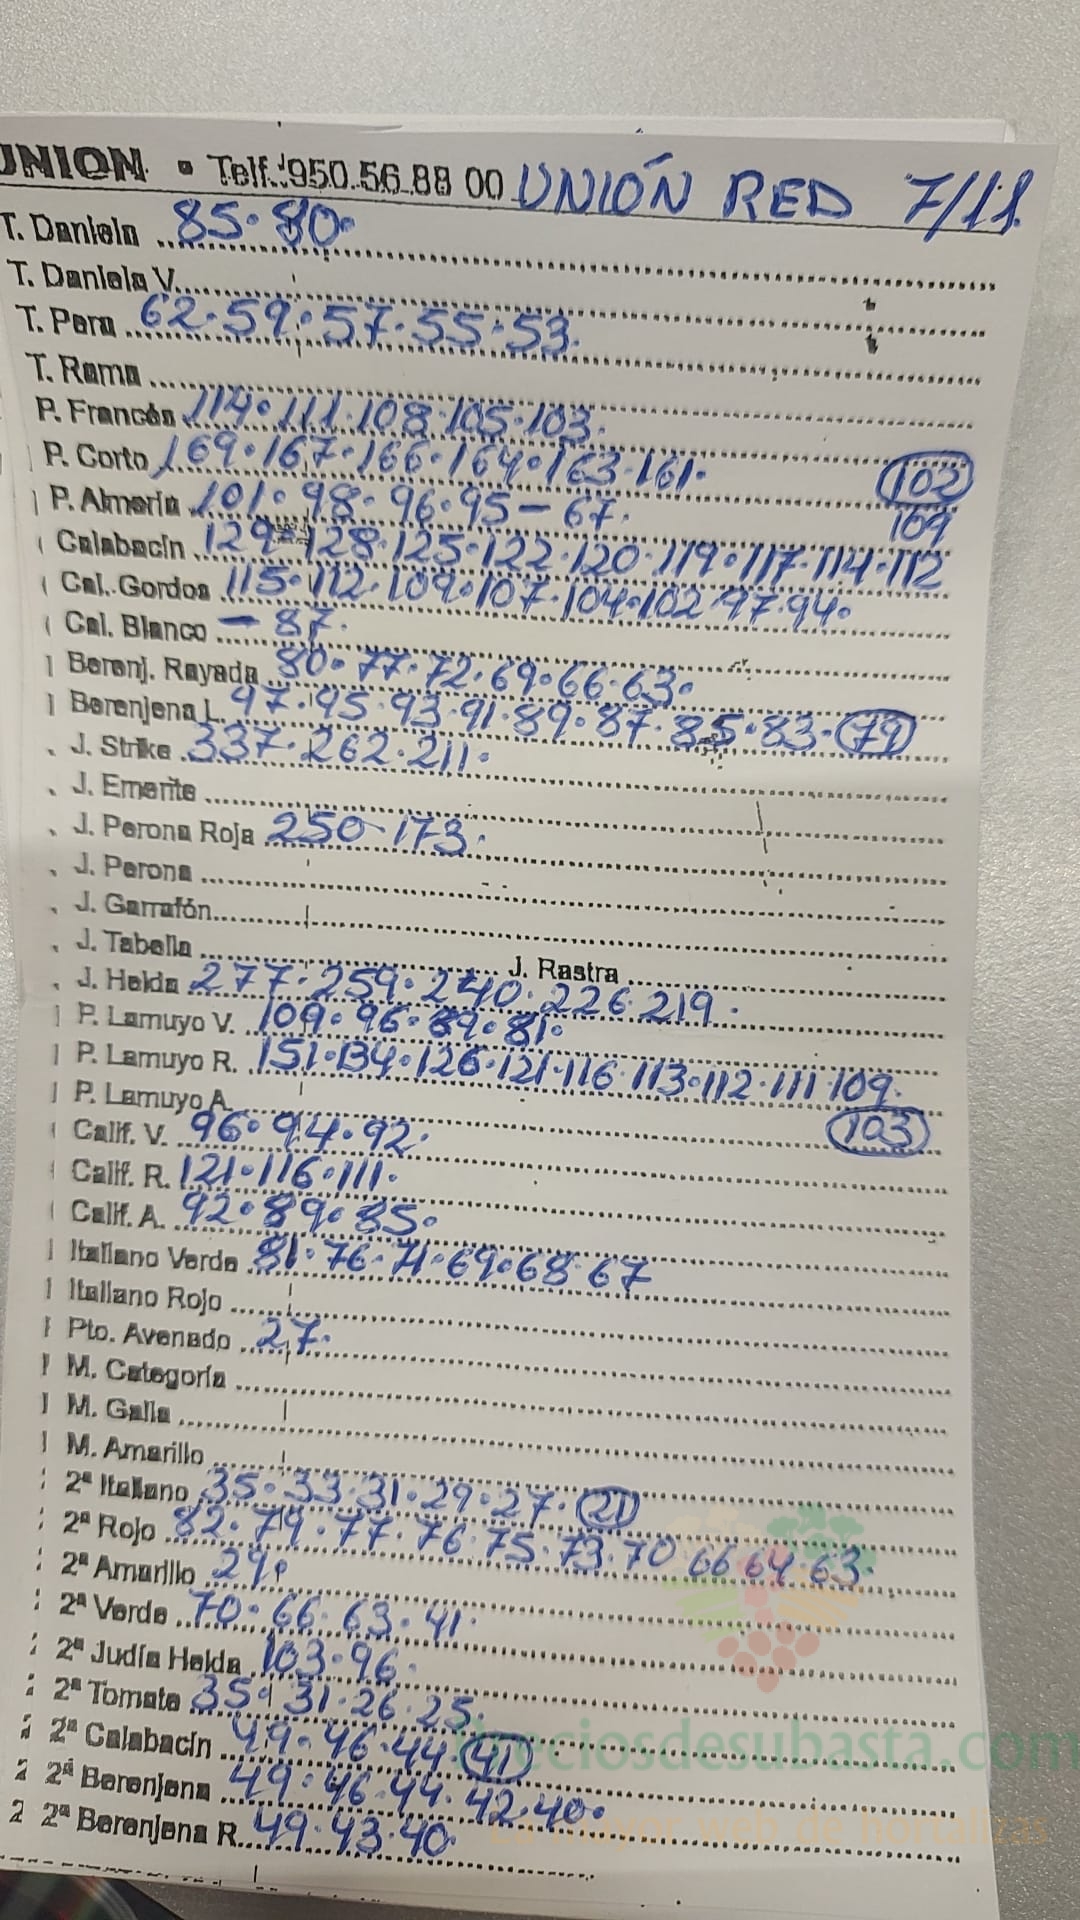 UNION • Telf.: 950.56.88 00 UNIÓN RED 7/11
T. Daniela 85.80.
T. Daniela V.
T. Pera 62.59.57.55.53.
T. Rama
P. Francés 114.111.108.105.103.
P. Corto 169.167.166.164.163.161. 102
P. Almería 101.98.96.95–67. 109
Calabacín 129.128.125.122.120.119.117.114.112
Cal. Gordos 115.112.109.107.104.102.97.94.
Cal. Blanco – 87.
Berenj. Rayada 80.77.72.69.66.63.
Berenjena L. 97.95.93.91.89.87.85.83.79
J. Strike 337.262.211.
J. Emerite
J. Perona Roja 250.173.
J. Perona
J. Garrafón
J. Tabella J. Rastra
J. Helda 277.259.240.226.219.
P. Lamuyo V. 109.96.89.81.
P. Lamuyo R. 151.134.126.121.116.113.112.111.109.
P. Lamuyo A. 103
Calif. V. 96.94.92.
Calif. R. 121.116.111.
Calif. A. 92.89.85.
Italiano Verde 81.76.71.69.68.67
Italiano Rojo
Pto. Avenado 27.
M. Categoría
M. Galia
M. Amarillo
2ª Italiano 35.33.31.29.27.21
2ª Rojo 82.79.77.76.75.73.70 66 64.63.
2ª Amarillo 29.
2ª Verde 70.66.63.41.
2ª Judía Helda 103.96.
2ª Tomate 35.31.26.25.
2ª Calabacín 49.46.44.41
preciosdesubasta.com
2ª Berenjena 49.46.44.42.40.
La mayor web de hortalizas
2ª Berenjena R. 49.43.40.